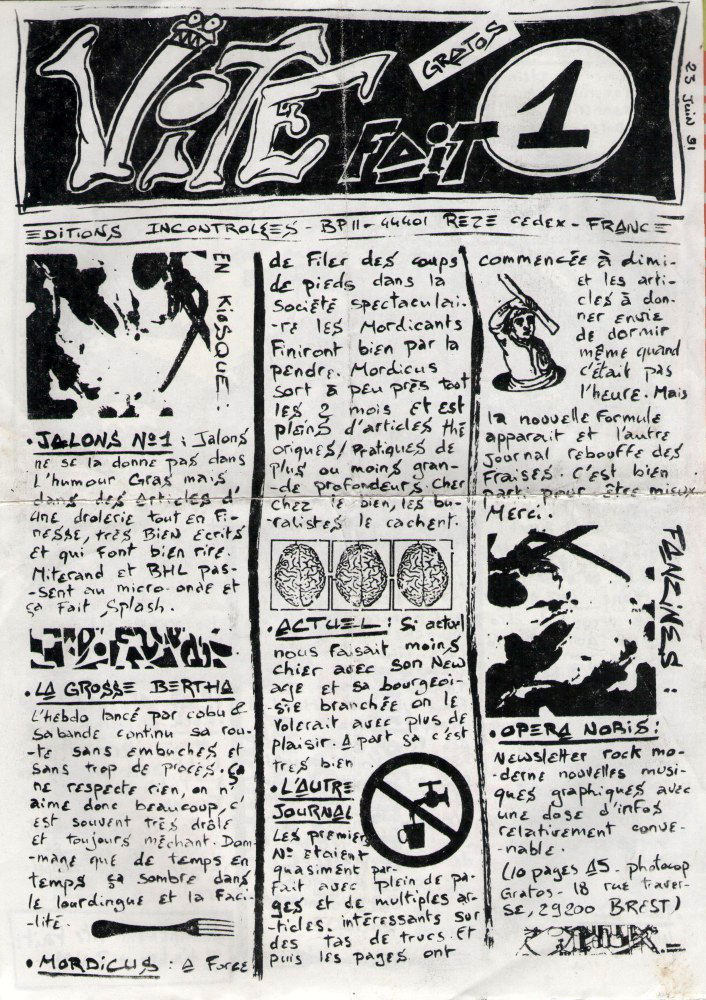 VITE FAIT 1
GRATOS
23 Juin 91
EDITIONS INCONTROLEES - BP 11 - 44401 REZE CEDEX - FRANCE
EN KIOSQUE :
• JALONS Nº1 : Jalons
ne se la donne pas dans
L'humour Gras mais
dans des articles d'
une drolerie tout en Fi-
nesse, très Bien Ecrits
et qui Font bien rire.
Miterand et BHL pas-
-sent au micro-onde et
ça Fait Splash.
• LA GROSSE BERTHA
L'hebdo lancé par cabu &
sa bande continu sa rou-
-te sans embuches et
sans trop de procès. ça
ne respecte rien, on n'
aime donc beaucoup, c'
est souvent très drôle
et toujours méchant. Dom-
-mage que de temps en
temps ça sombre dans
le lourdingue et la Faci-
-lité.
• MORDICUS : A Force
de Filer des coups
de pieds dans la
Société spectaculai-
-re les Mordicants
Finiront bien par la
pendre. Mordicus
sort à peu près tout
les 2 mois et est
pleins d'articles thé
oriques/Pratiques de
plus ou moins gran-
-de profondeurs. cher
chez le bien, les bu-
-ralistes le cachent.
• ACTUEL : Si actuel
nous faisait moins
chier avec son New
age et sa bourgeoi-
-sie branchée on le
volerait avec plus de
plaisir. A part ça c'est
très bien
• L'AUTRE
JOURNAL
Les premiers
Nº étaient
quasiment par-
Fait avec plein de pa-
ges et de multiples ar-
-ticles intéressants sur
des tas de trucs. Et
puis les pages ont
commencée à dimi-
et les arti-
cles à don-
ner envie
de dormir
même quand
c'était pas
l'heure. Mais
la nouvelle Formule
apparait et l'autre
Journal rebouffe des
Fraises. C'est bien
parti pour être mieux
Merci.
FANZINES :
• OPERA NOBIS :
Newsletter rock mo-
-derne nouvelles musi-
ques graphiques avec
une dose d'infos
relativement conve-
-nable.
(10 pages A5. photocop
Gratos - 18 rue traver-
se, 29200 BREST)